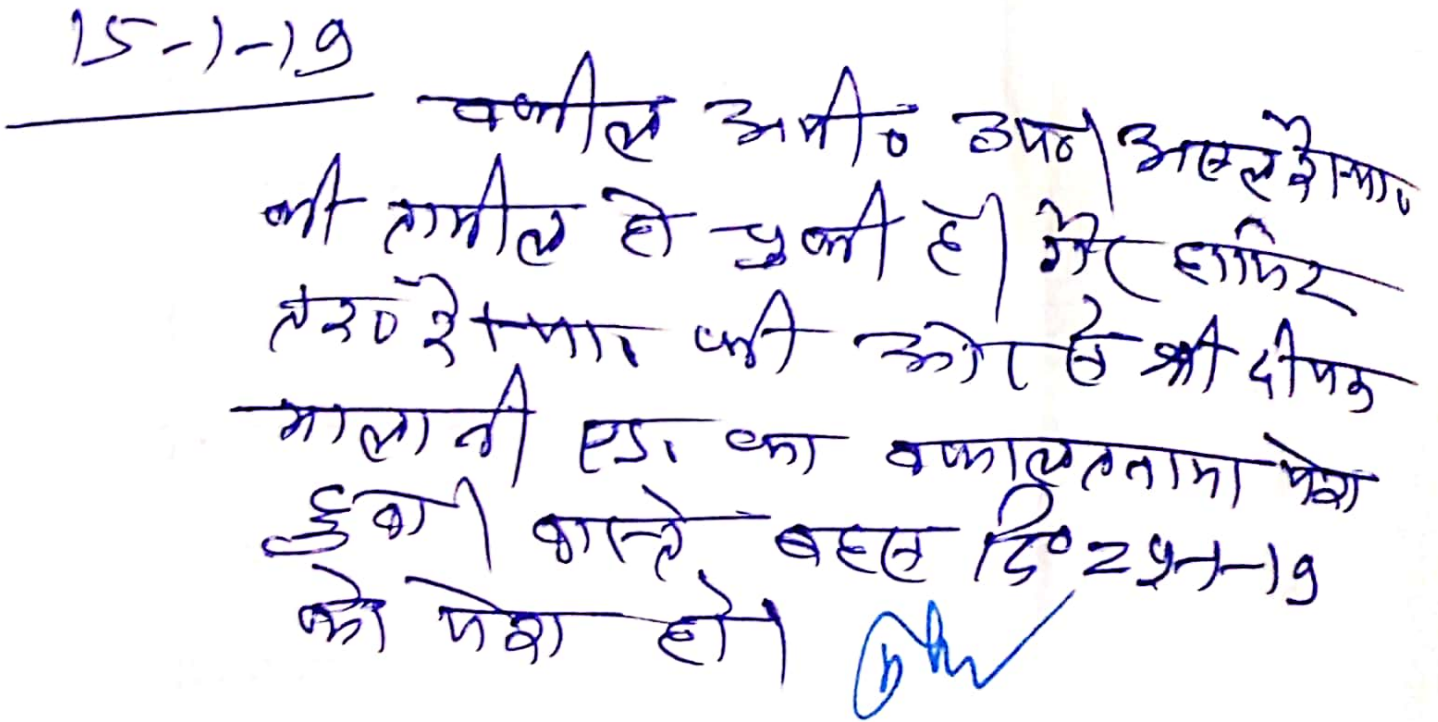 15-1-19
वकील अपी० उप०। असल रेस्पा०
की तामील हो चुकी है। गैर हाजिर
तर० रेस्पा० की ओर से श्री दीपक
मालानी एड. का वकालतनामा पेश
हुवा। वास्ते बहस दि० 29-1-19
को पेश हो।